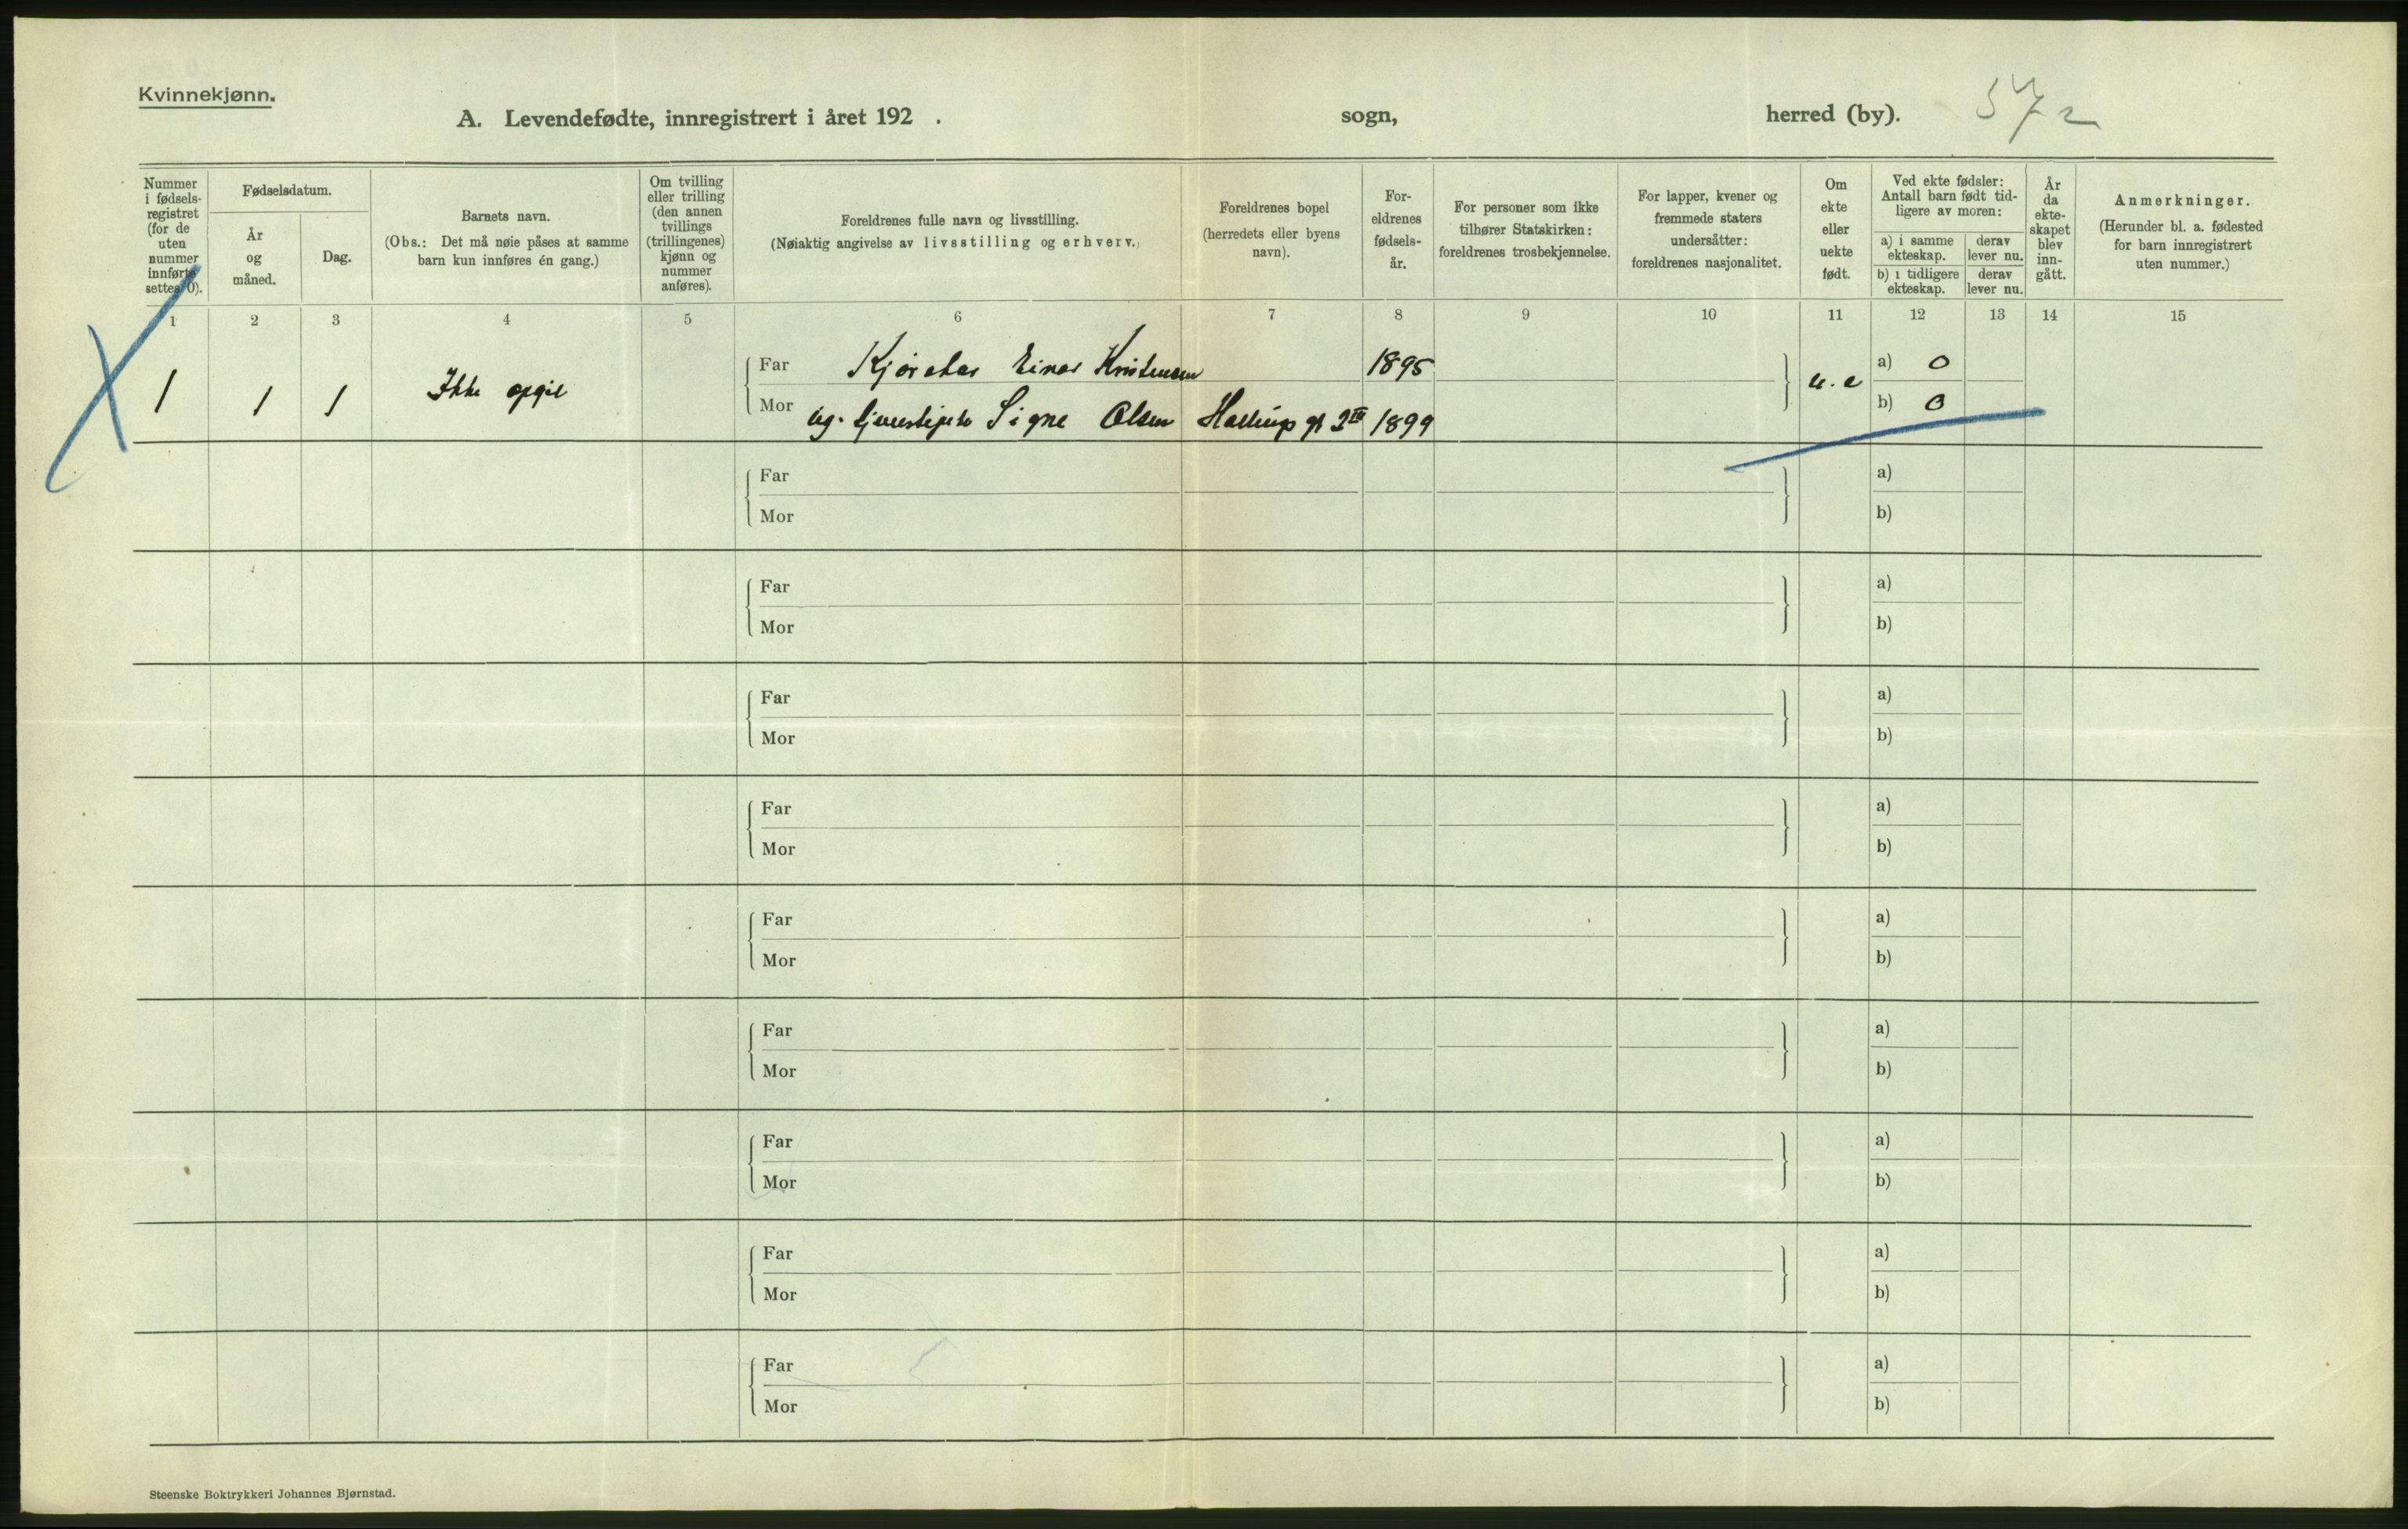 Kvinnekjønn.
A. Levendefødte, innregistrert i året 192 . sogn, herred (by).
Nummer i fødselsregistret (for de uten nummer innførte settes 0).
Fødselsdatum.
År og måned.
Dag.
Barnets navn.
(Obs.: Det må nøie påses at samme barn kun innføres én gang.)
Om tvilling eller trilling (den annen tvillings (trillingenes) kjønn og nummer anføres).
Foreldrenes fulle navn og livsstilling.
(Nøiaktig angivelse av livsstilling og erhverv.)
Foreldrenes bopel (herredets eller byens navn).
For-eldrenes fødsels-år.
For personer som ikke tilhører Statskirken: foreldrenes trosbekjennelse.
For lapper, kvener og fremmede staters undersåtter: foreldrenes nasjonalitet.
Om ekte eller uekte født.
Ved ekte fødsler: Antall barn født tid-ligere av moren:
a) i samme ekteskap.
derav lever nu.
b) i tidligere ekteskap.
derav lever nu.
År da ekte-skapet blev inn-gått.
Anmerkninger.
(Herunder bl. a. fødested for barn innregistrert uten nummer.)
1 2 3 4 5 6 7 8 9 10 11 12 13 14 15
Far Einar 1895 a) 0
1 1 1 Ikke u. e
Mor Signe Olsen 1899 b) 0
Far a)
Mor b)
Far a)
Mor b)
Far a)
Mor b)
Far a)
Mor b)
Far a)
Mor b)
Far a)
Mor b)
Far a)
Mor b)
Far a)
Mor b)
Far a)
Mor b)
Steenske Boktrykkeri Johannes Bjørnstad.